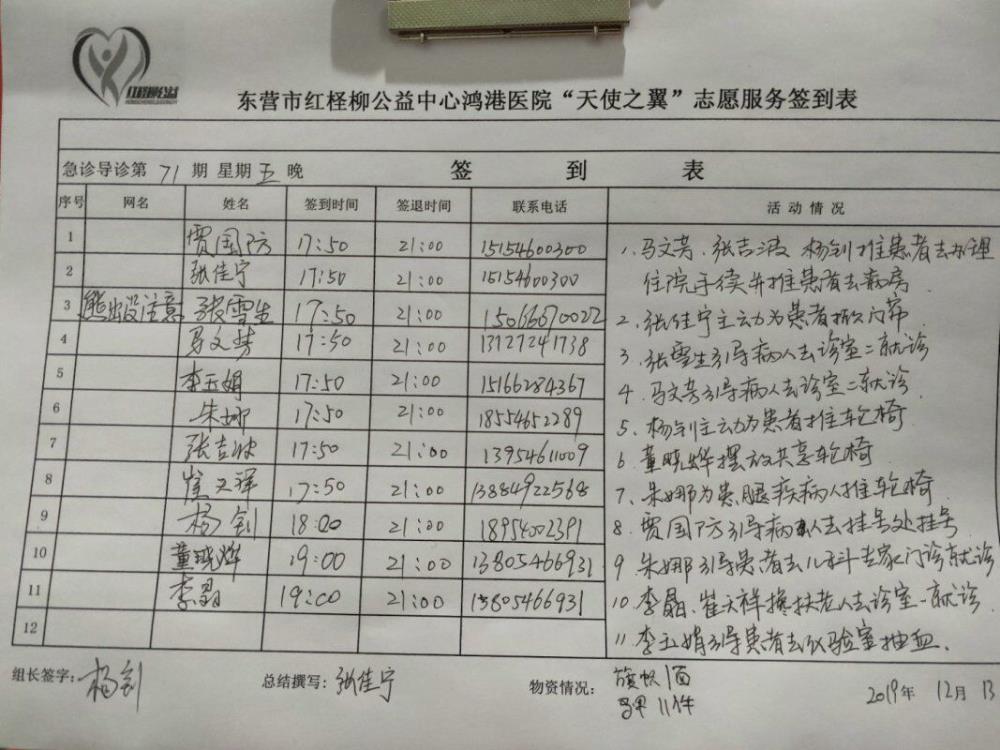 红柽柳公益
东营市红柽柳公益中心鸿港医院“天使之翼”志愿服务签到表
急诊导诊第 71 期 星期 五 晚 签 到 表
序号 网名 姓名 签到时间 签退时间 联系电话 活动情况
1 贾国防 17:50 21:00 15154600300
2 张佳宁 17:50 21:00 15154600300
3 熊出没注意 张雪生 17:50 21:00 15066670022
4 马文芳 17:50 21:00 13127241738
5 李玉娟 17:50 21:00 15166284367
6 朱娜 17:50 21:00 18554652289
7 张吉波 17:50 21:00 13954611009
8 崔天祥 17:50 21:00 13884922568
9 杨钊 18:00 21:00 18954002391
10 董晓烨 19:00 21:00 13805466931
11 李晶 19:00 21:00 13805466931
12
1、马文芳、张吉波 杨钊推患者去办理
住院手续并推患者去病房
2、张佳宁主动为患者掀门帘
3、张雪生引导病人去诊室二就诊
4、马文芳引导病人去诊室二就诊
5、杨钊主动为患者推轮椅
6 董晓烨摆放共享轮椅
7、朱娜为患腿疾病人推轮椅
8、贾国防引导病人去挂号处挂号
9 朱娜引导患者去儿科专家门诊就诊
10、李晶、崔天祥搀扶老人去诊室一就诊
11、李玉娟引导患者去化验室抽血.
组长签字: 杨钊 总结撰写: 张佳宁 物资情况: 旗帜1面
马甲11件
2019年 12月 13